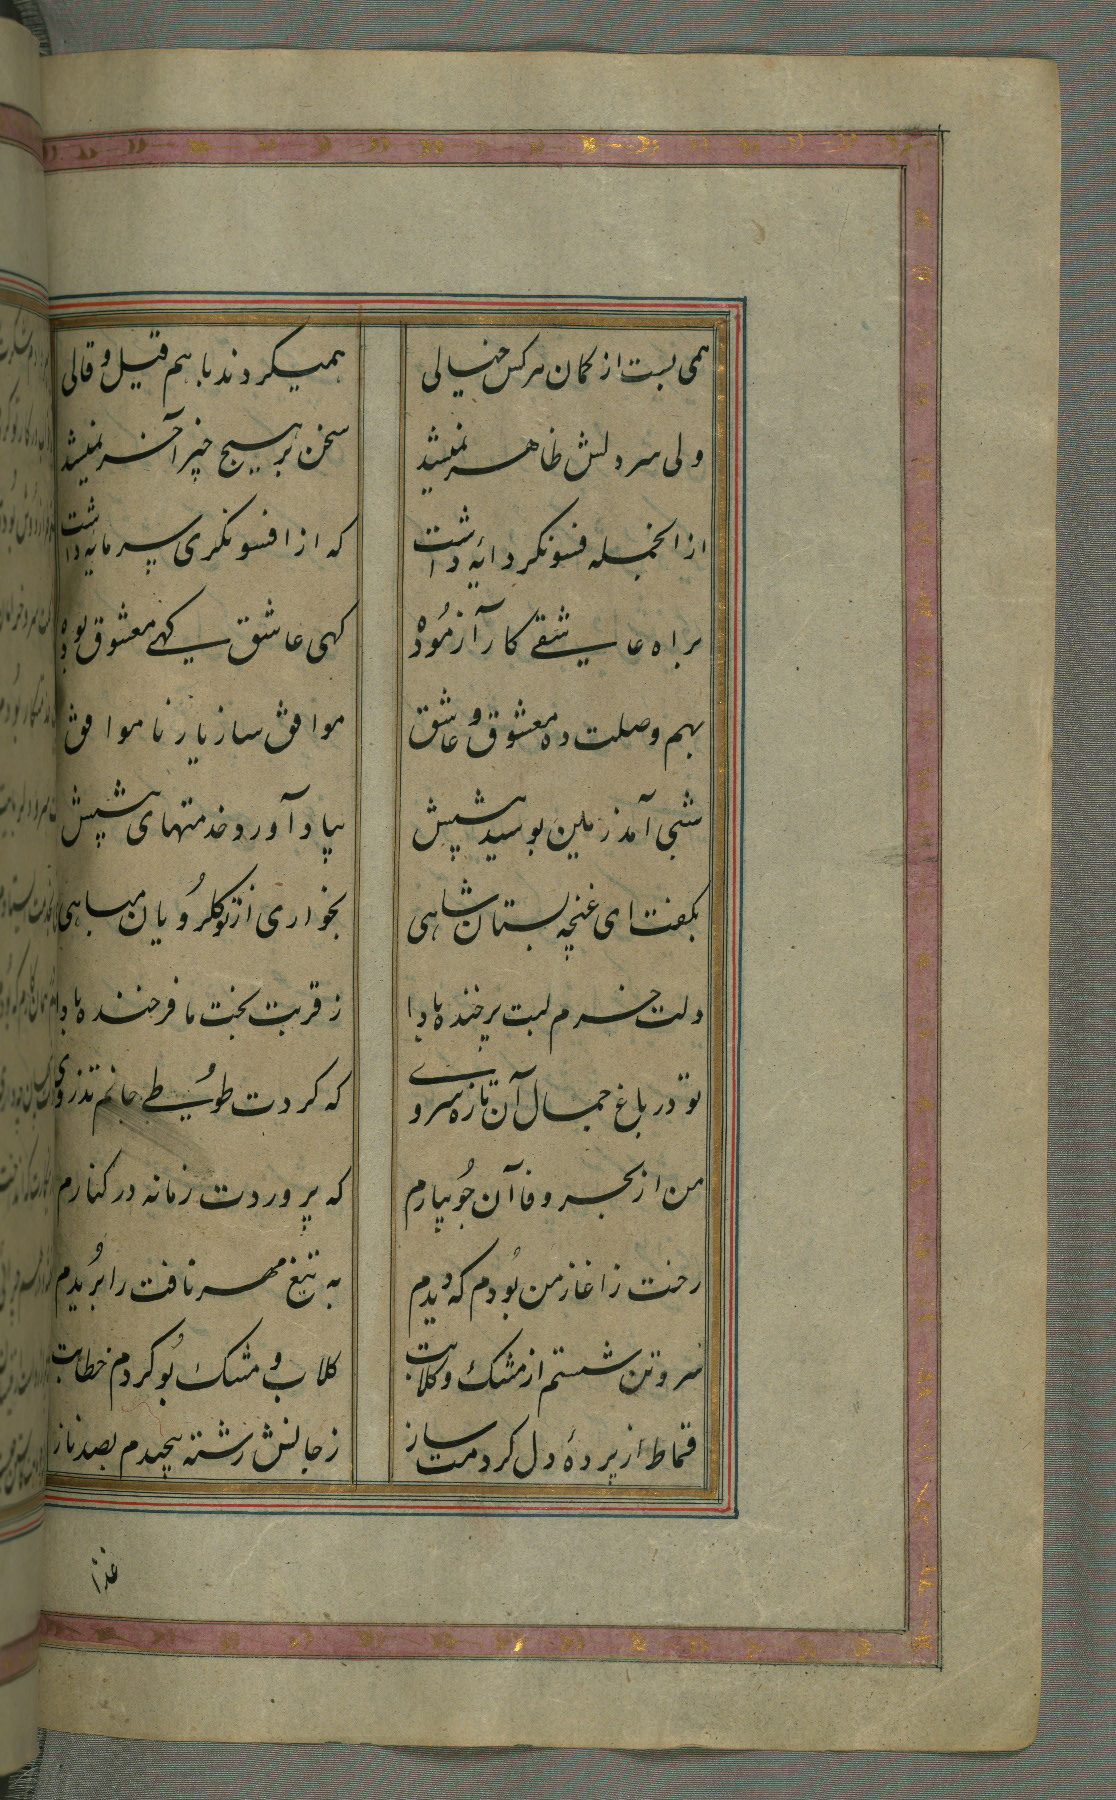 همی بست از کمان هرکس خیالی همیکردند با هم قیل و قالی
ولی سر دلش ظاهر نمیشد سخن بر هیچ چیز آخر نمیشد
از انجمله فسونکر دایهٔ داشت که از افسونکری سرمایهٔ داشت
براه عاشقے کار آزموده کهی عاشق کهے معشوق بوده
بهم وصلت ده معشوق و عاشق موافق ساز یار ناموافق
شبی آمد زمین بوسید پیشش بیاد آورد خدمتهای پیشش
بکفت ای غنچه بستان شاهی بخواری از تو کلرویان مباهی
دلت خرم لبت پرخنده بادا ز فربت بخت ما فرخنده بادا
تو در باغ جمال آن تازه سروے که کردت طوطے جانم تذروی
من از بحر وفا آن جویبارم که پروردت زمانه در کنارم
رخت ز اغاز من بودم که دیدم به تیغ مهر نافت را بریدم
سر و تن شستم از مشک و کلابت کلاب و مشک بو کردم خطابت
قماط از پردهٔ دل کردمت ساز ز جانش رشته پیچیدم بصد ناز
غذا